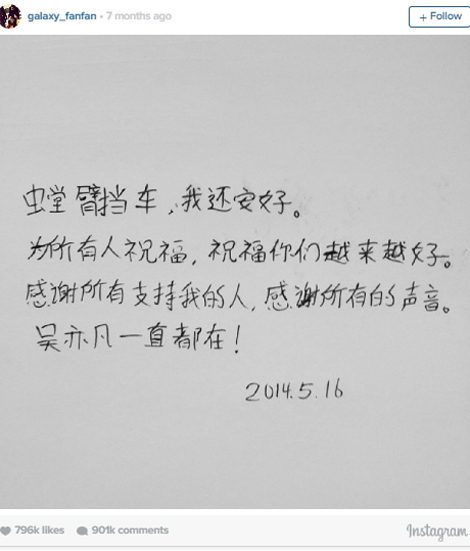 galaxy_fanfan • 7 months ago
+ Follow
螳臂挡车,我还安好。
为所有人祝福,祝福你们越来越好。
感谢所有支持我的人,感谢所有的声音。
吴亦凡一直都在!
2014.5.16
796k likes 901k comments
Instagram